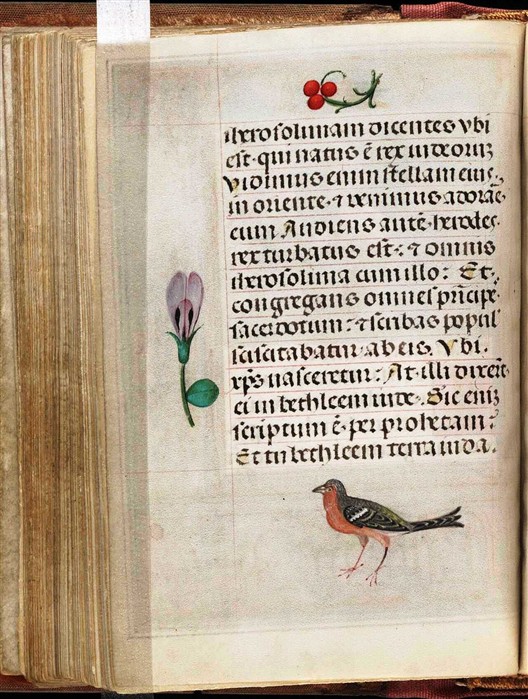 iherosolimam dicentes vbi
est qui natus ē rex iudeorum
vidimus enim stellam eius
in oriente ⁊ venimus adorāe
eum Audiens autē herodes
rex turbatus est: ⁊ omnis
iherosolima cum illo: Et
congregans omnes prīcipe
sacerdotum: ⁊ scribas popul
sciscitabatur ab eis. Vbi
xp̄s nasceretur: At illi dixerūt
ei in bethleem iude. Sic enī
scriptum ē per prophetam:
Et tu bethleem terra iuda.